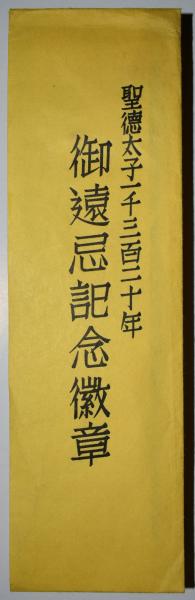 聖徳太子一千三百二十年
御遠忌記念徽章